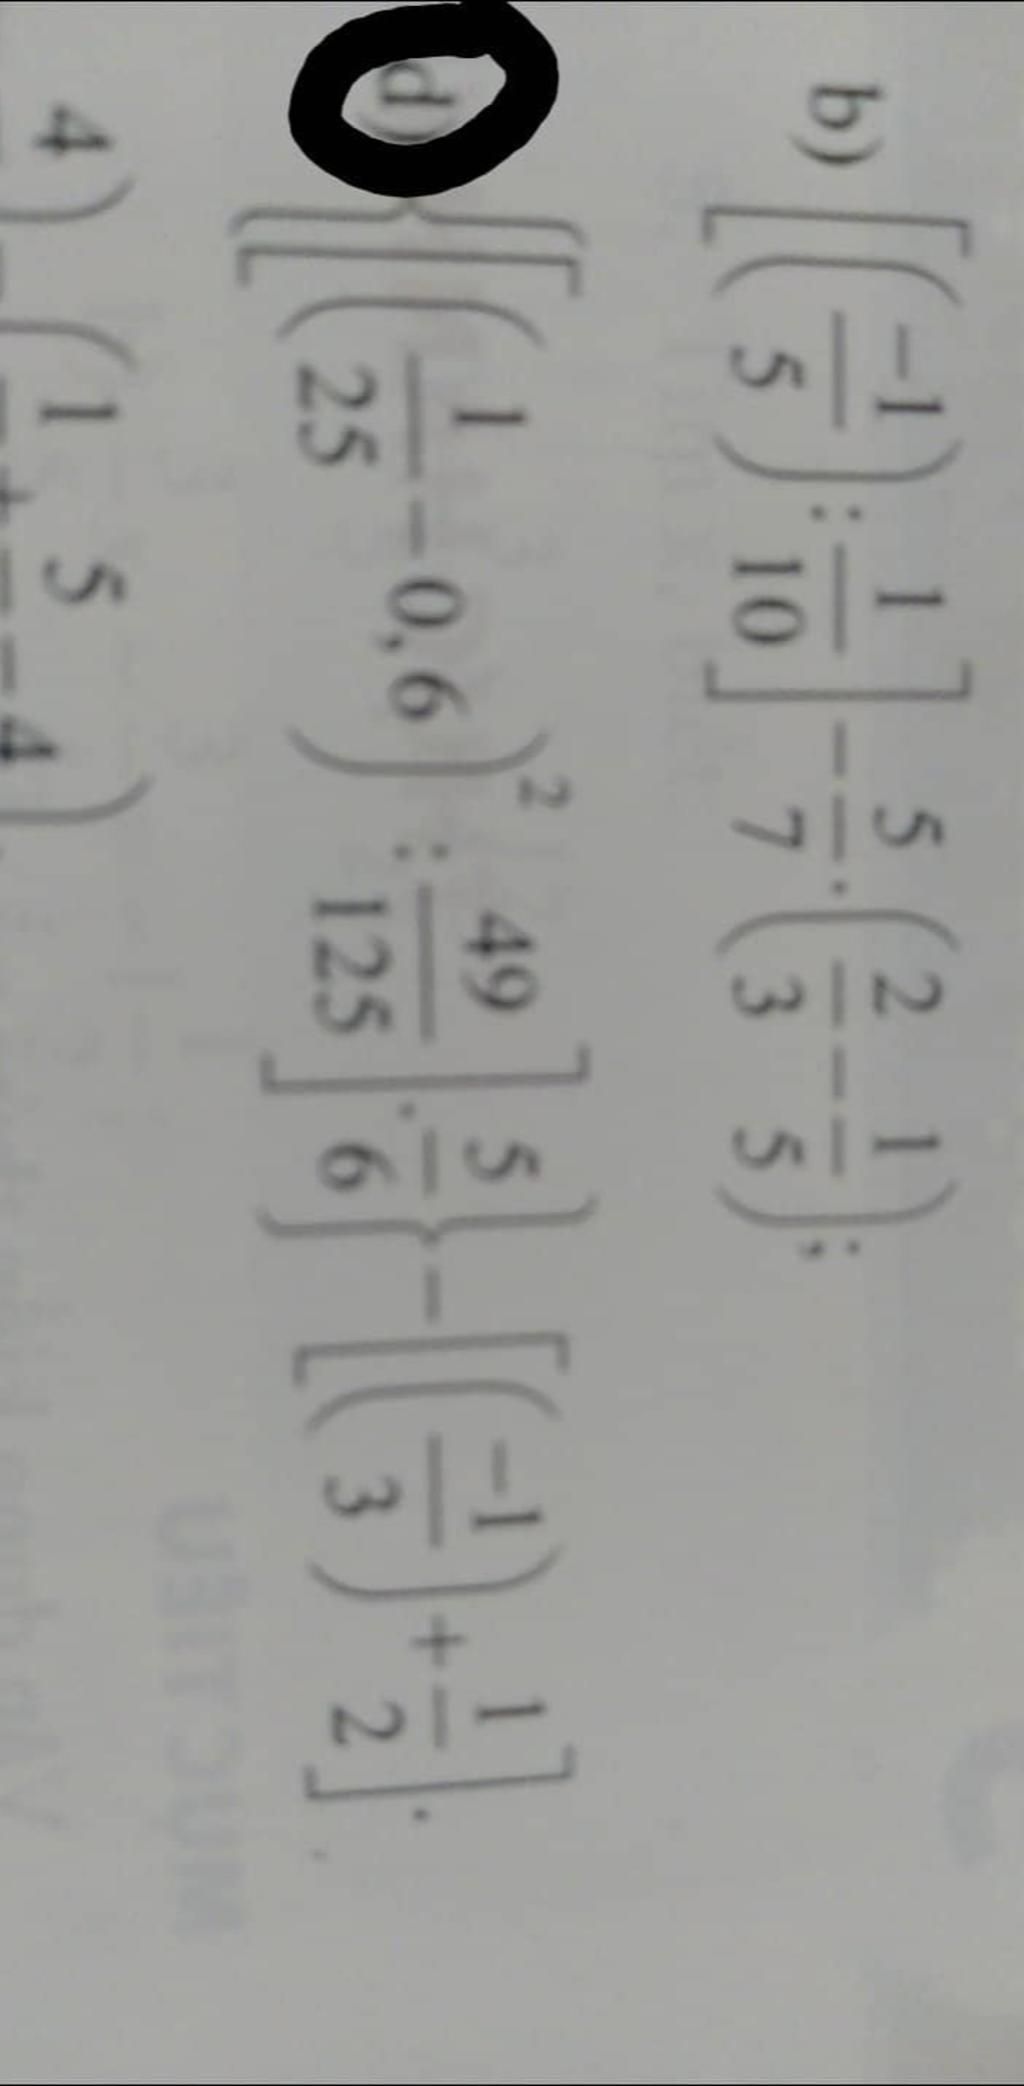 b) [(-1/5) : 1/10] - 5/7 · (2/3 - 1/5);
d) {[(1/25 - 0,6)² : 49/125] · 5/6} - [(-1/3) + 1/2].